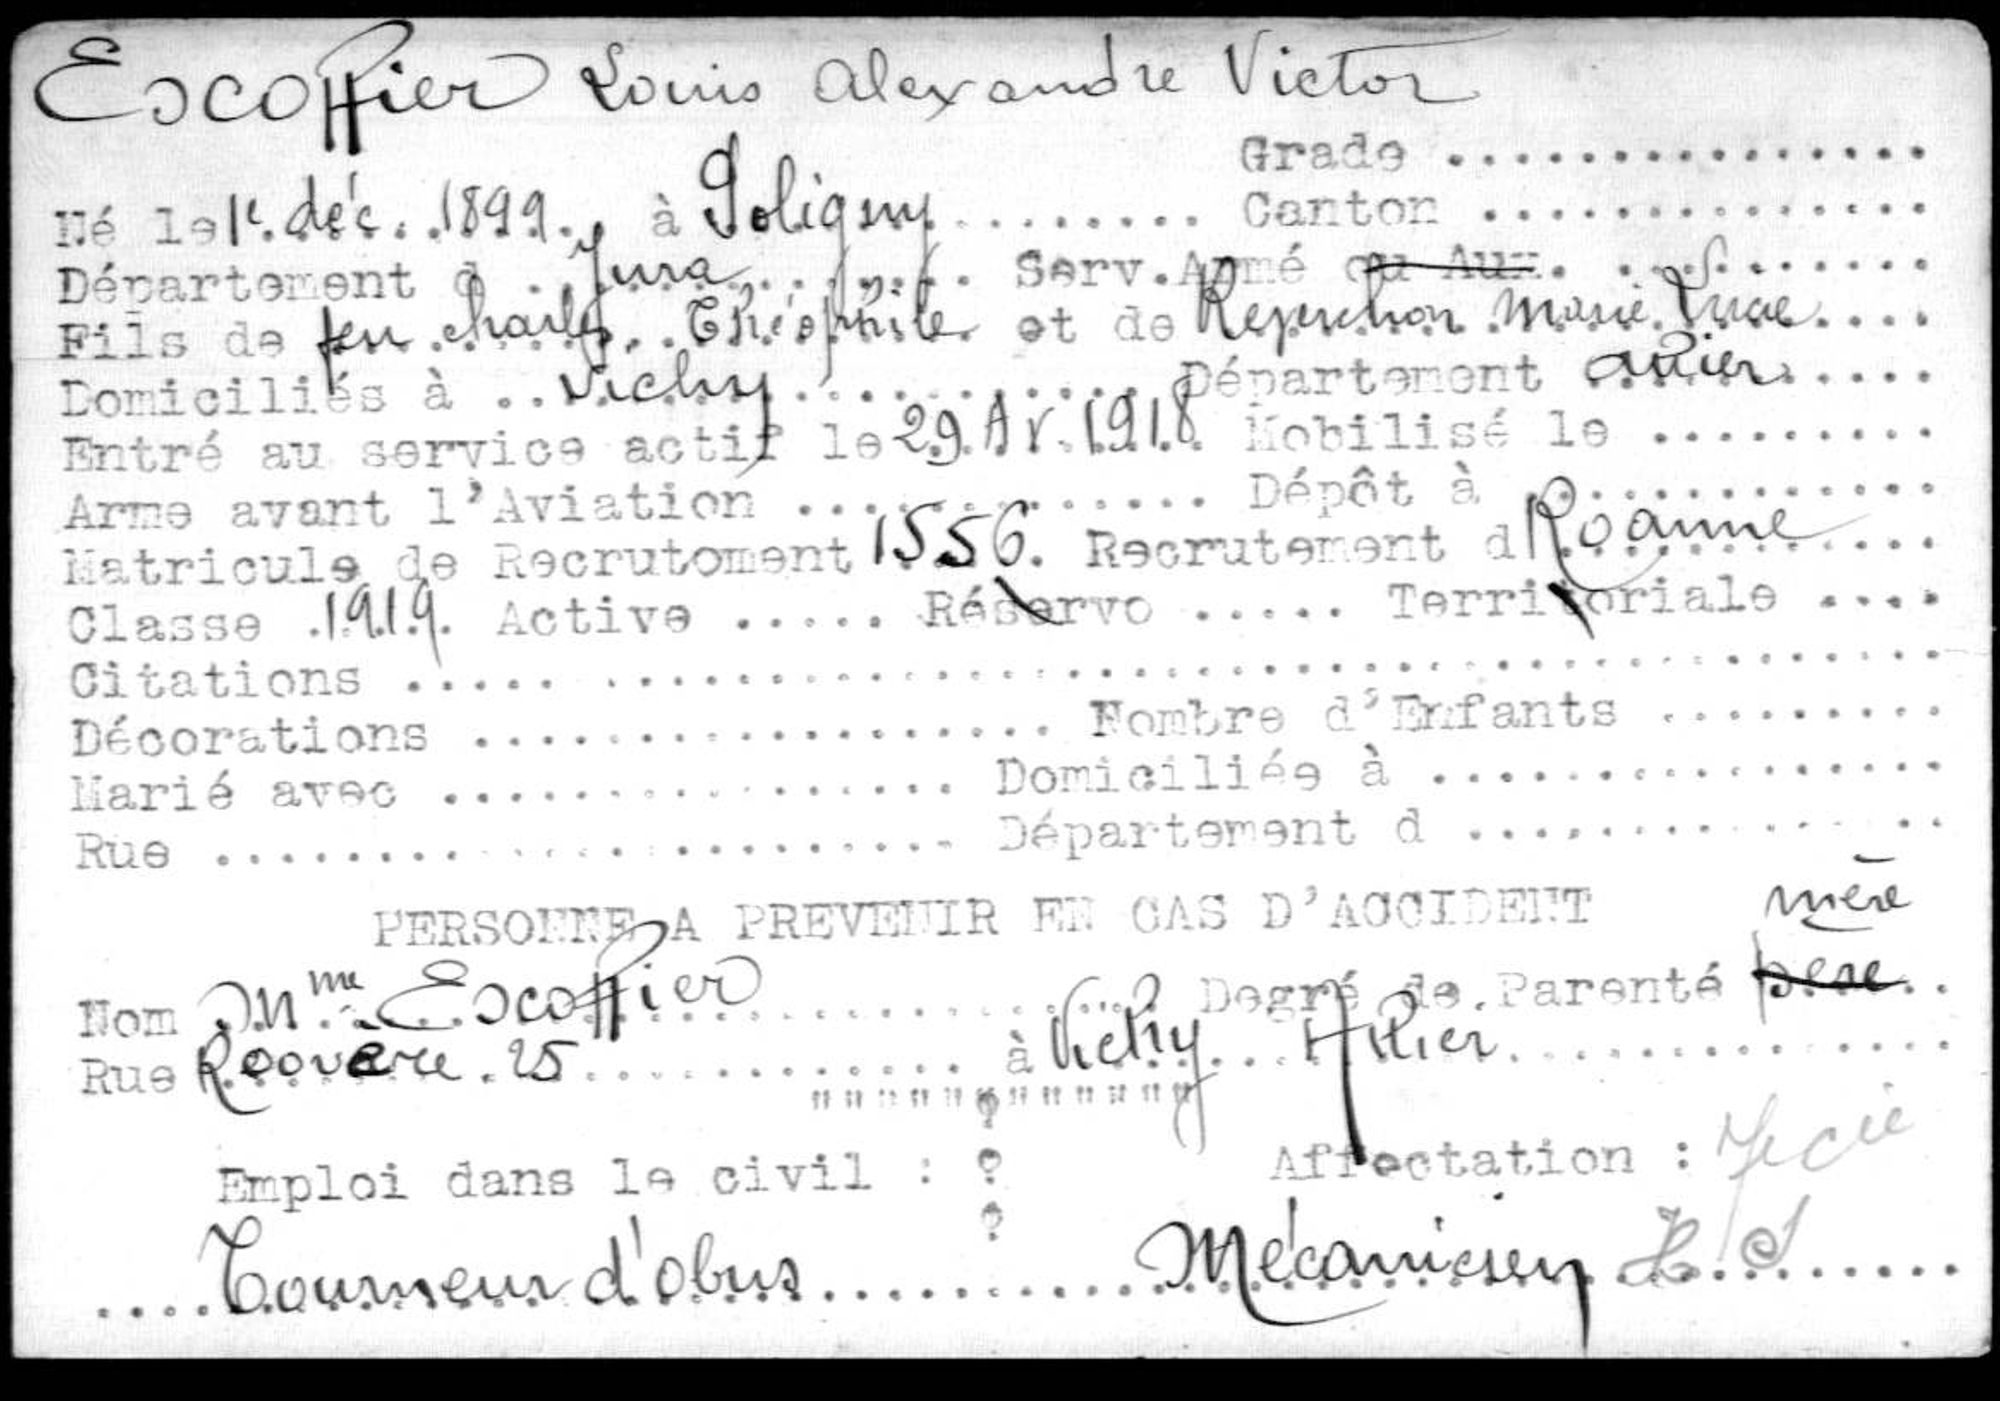 Escoffier Louis Alexandre Victor
Grade ...............
Né le 1e déc. 1899. à Poligny ........ Canton ..............
Département d . Jura ....... Serv. Armé ou Aux. ..........
Fils de feu Charles Théophile et de Marie ....
Domiciliés à .. Vichy ............ Département Allier .....
Entré au service actif le 29 Av. 1918 Mobilisé le .........
Arme avant l'Aviation ............. Dépôt à ............
Matricule de Recrutement 1556. Recrutement d Roanne ....
Classe .1919. Active ..... Réserve ..... Territoriale ....
Citations ................................................
Décorations .................. Nombre d'Enfants .........
Marié avec ................ Domiciliés à ................
Rue ....................... Département d ...............
PERSONNE A PREVENIR EN CAS D'ACCIDENT
mère
Nom Mme Escoffier ................. Degré de Parenté père ..
Rue 25 ............ à Vichy ... Allier ..............
""""""""""""
Emploi dans le civil : Affectation :
.... Tourneur d'obus .......... Mécanicien ..........